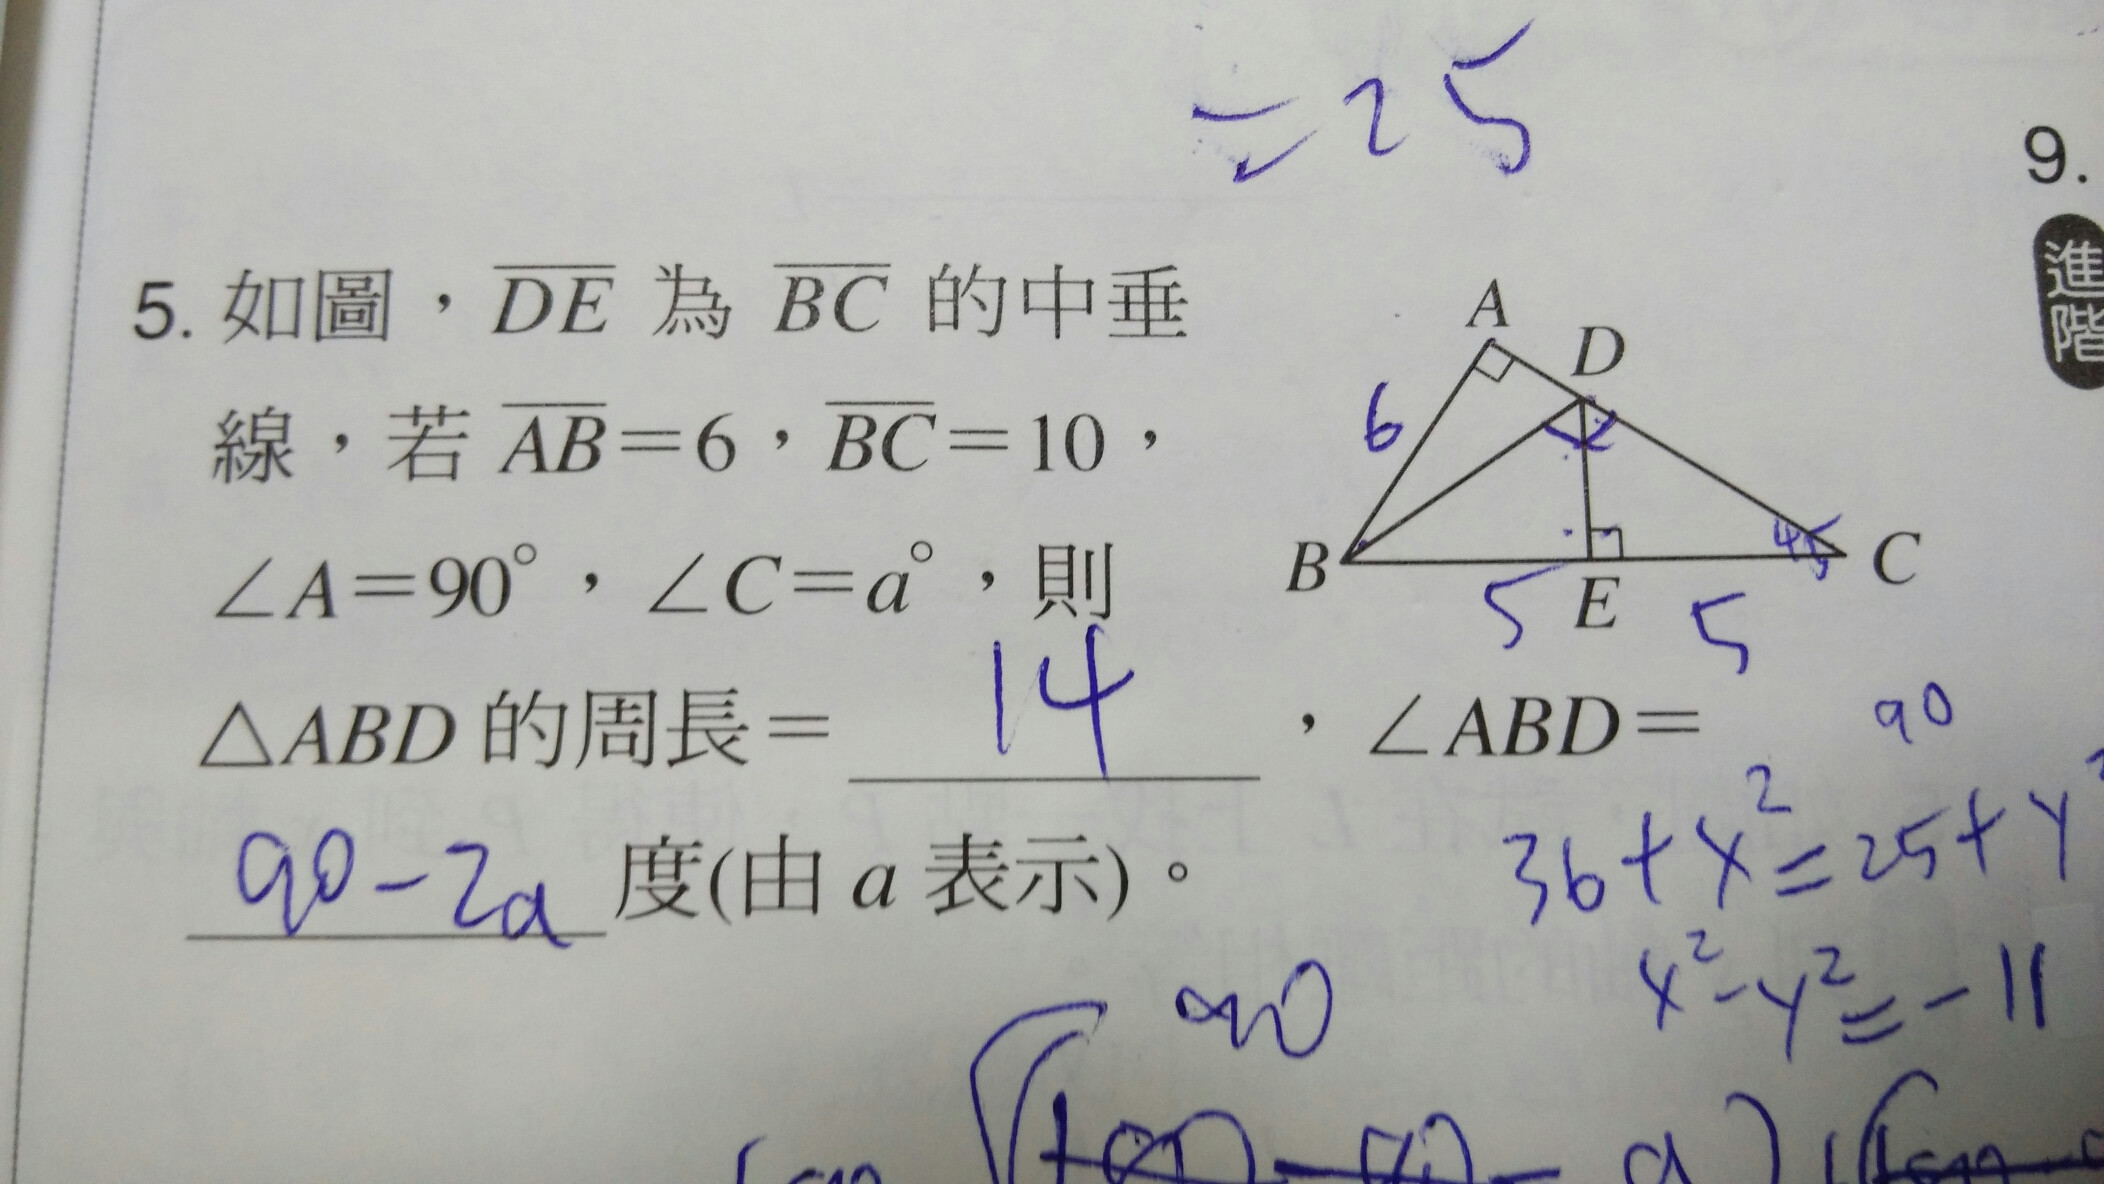 =25
9.
進階
5. 如圖，DE 為 BC 的中垂
線，若 AB=6，BC=10，
∠A=90°，∠C=a°，則
△ABD 的周長= 14 ，∠ABD=
90-2a 度(由 a 表示)。
A
D
6
B
E
C
45
5
5
90
36+x²=25+y²
x²-y²=-11
90